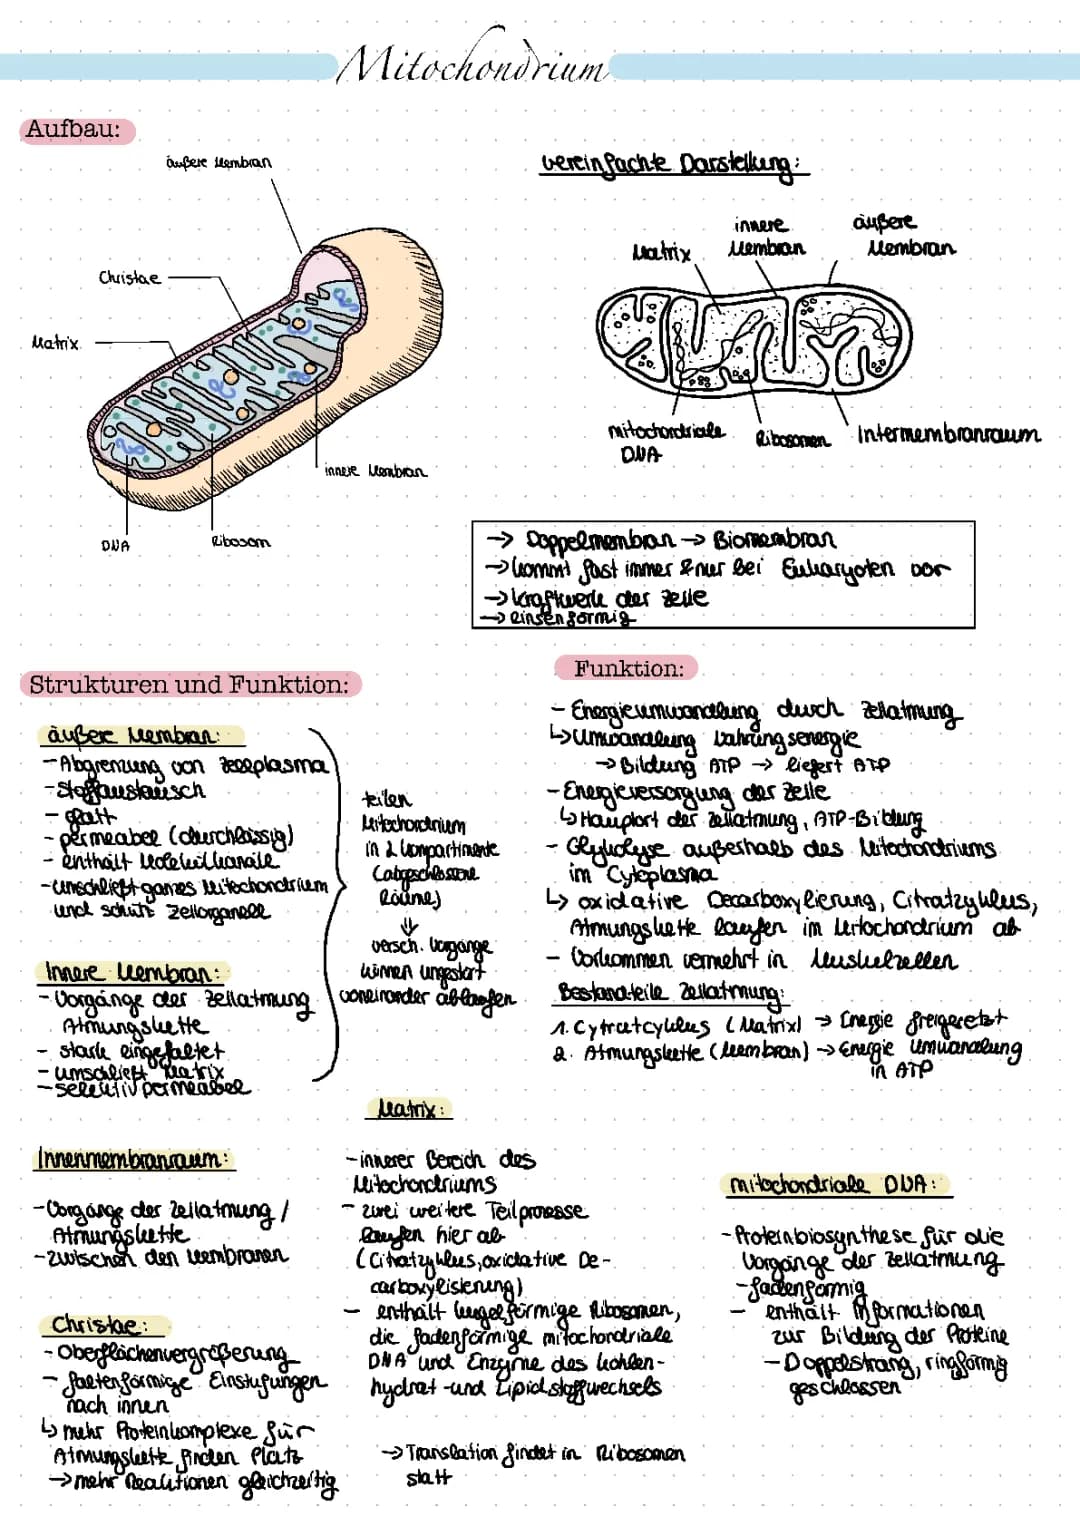 Mitochondrium
Aufbau:
äußere Membran
Christae
Matrix
DNA
Ribosom
innere Membran
vereinfachte Darstellung:
Matrix
innere
Membran
äußere
Membran
mitochondriale
DNA
Ribosomen
Intermembranraum
→ Doppelmembran → Biomembran
→ kommt fast immer & nur bei Eukaryoten vor
→ Kraftwerk der Zelle
→ linsenförmig
Strukturen und Funktion:
äußere Membran:
- Abgrenzung von Zellplasma
- Stoffaustausch
- glatt
- permeabel (durchlässig)
- enthält Molekülkanäle
- umschließt ganzes Mitochondrium
und schützt Zellorganell
Innere Membran:
- Vorgänge der Zellatmung
Atmungskette
- stark eingefaltet
- umschließt Matrix
- selektiv permeabel
teilen
Mitochondrium
in 2 Kompartimente
(abgeschlossene
Räume)
⇓
versch. Vorgänge
können ungestört
voneinander ablaufen
Funktion:
- Energieumwandlung durch Zellatmung
↳ Umwandlung Nahrungsenergie
→ Bildung ATP → liefert ATP
- Energieversorgung der Zelle
↳ Hauptort der Zellatmung, ATP-Bildung
- Glykolyse außerhalb des Mitochondriums
im Cytoplasma
↳ oxidative Decarboxylierung, Citratzyklus,
Atmungskette laufen im Mitochondrium ab
- Vorkommen vermehrt in Muskelzellen
Bestandteile Zellatmung:
1. Cytratcyklus (Matrix) → Energie freigesetzt
2. Atmungskette (Membran) → Energie Umwandlung
in ATP
Innenmembranraum:
- Vorgänge der Zellatmung /
Atmungskette
- zwischen den Membranen
Christae:
- Oberflächenvergrößerung
- faltenförmige Einstufungen
nach innen
↳ mehr Proteinkomplexe für
Atmungskette finden Platz
→ mehr Reaktionen gleichzeitig
Matrix:
- innerer Bereich des
Mitochondriums
- zwei weitere Teilprozesse
laufen hier ab
(Citratzyklus, oxidative De-
carboxylisierung)
- enthält kugelförmige Ribosomen,
die fadenförmige mitochondriale
DNA und Enzyme des Kohlen-
hydrat- und Lipidstoffwechsels
→ Translation findet in Ribosomen
statt
mitochondriale DNA:
- Proteinbiosynthese für die
Vorgänge der Zellatmung
- fadenförmig
- enthält Informationen
zur Bildung der Proteine
- Doppelstrang, ringförmig
geschlossen